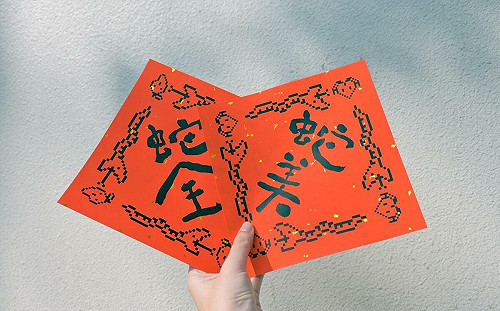 蛇
全
蛇
美